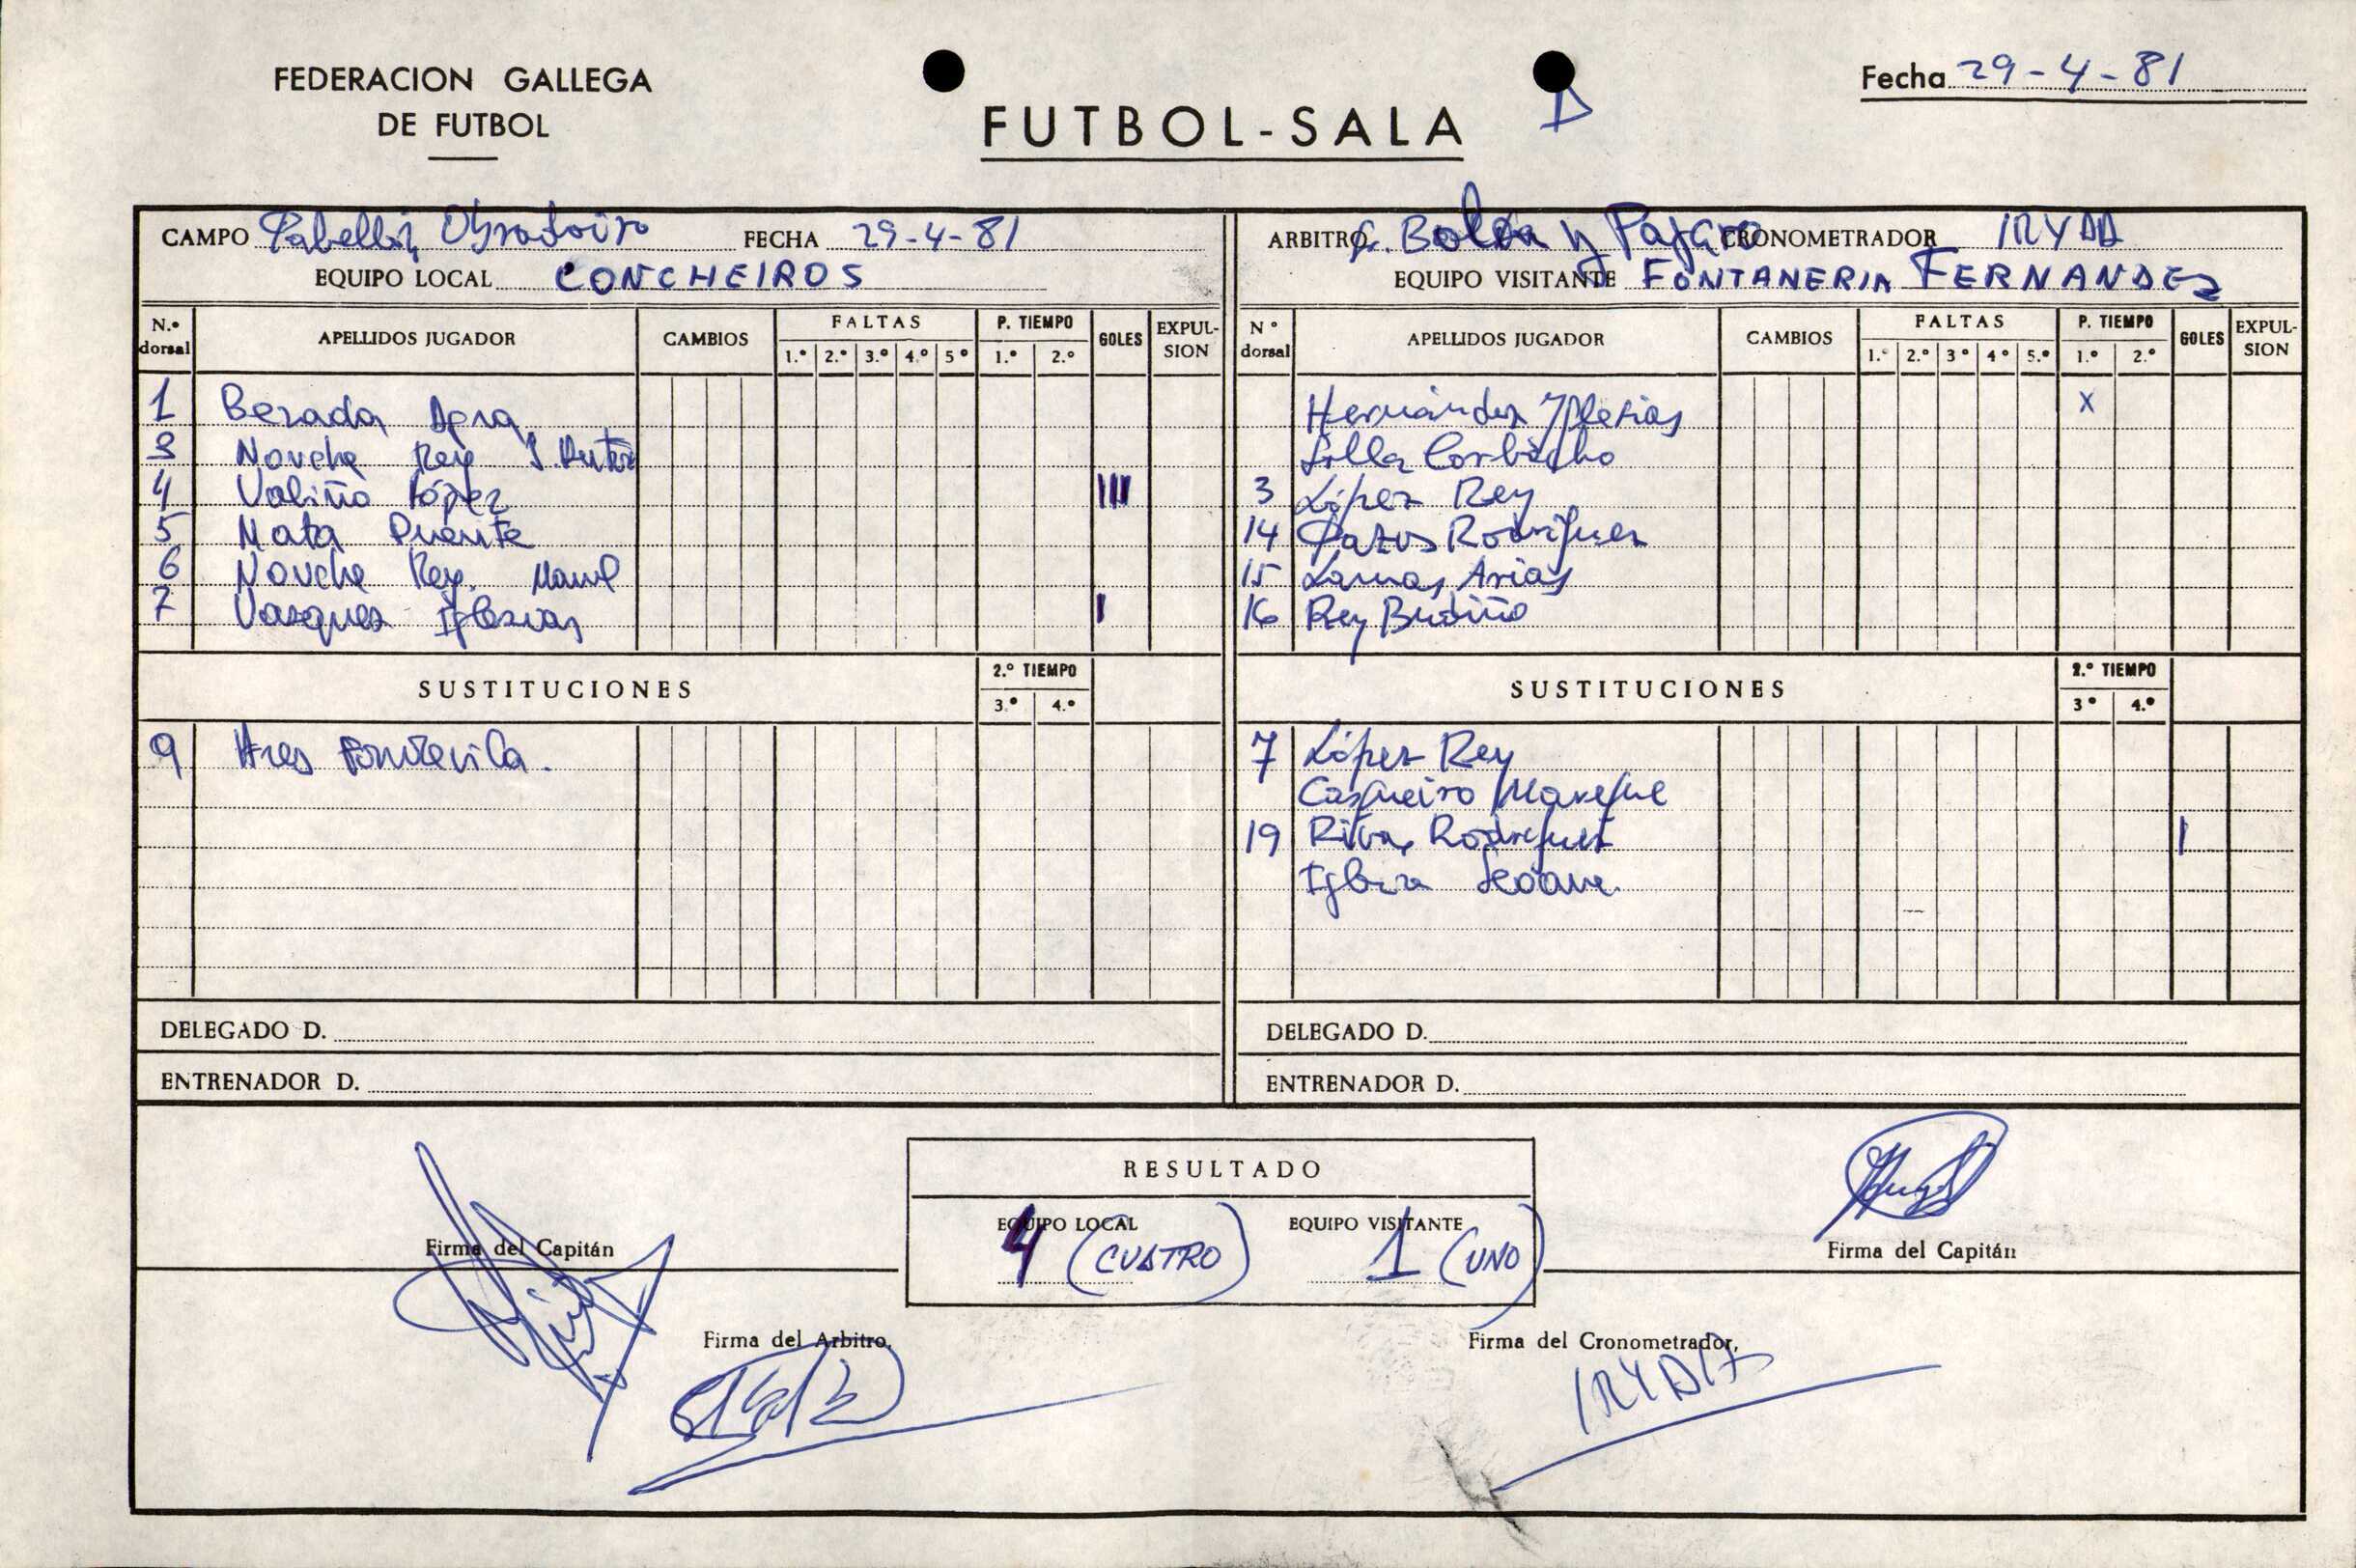 FEDERACION GALLEGA
DE FUTBOL
FUTBOL-SALA
Fecha 29-4-81
CAMPO Pabellón Obradoiro FECHA 29-4-81
EQUIPO LOCAL CONCHEIROS
N.º dorsal APELLIDOS JUGADOR CAMBIOS FALTAS 1.º 2.º 3.º 4.º 5º P. TIEMPO 1.º 2.º GOLES EXPULSION
1 Bezada
3 Nouche Rey J.
4 Valiño López III
5 Mata Puente
6 Nouche Rey. Manuel
7 Vazquez Iglesias I
SUSTITUCIONES 2.º TIEMPO 3.º 4.º
9 Ares Fontevila.
DELEGADO D.
ENTRENADOR D.
ARBITRO Bolón y Pájaro CRONOMETRADOR
EQUIPO VISITANTE FONTANERIA FERNANDEZ
Nº dorsal APELLIDOS JUGADOR CAMBIOS FALTAS 1.º 2.º 3º 4º 5.º P. TIEMPO 1.º 2.º GOLES EXPULSION
Hernández Yglesias X
Lolla Corbacho
3 López Rey
14 Pazos Rodríguez
15 Lamas Arias
16 Rey Budiño
SUSTITUCIONES 2.º TIEMPO 3º 4.º
7 López Rey
Casqueiro
19 Rivas Rodríguez I
Seoane.
DELEGADO D.
ENTRENADOR D.
RESULTADO
EQUIPO LOCAL EQUIPO VISITANTE
4 (CUATRO) 1 (UNO)
Firma del Capitán
Firma del Capitán
Firma del Arbitro,
Firma del Cronometrador,